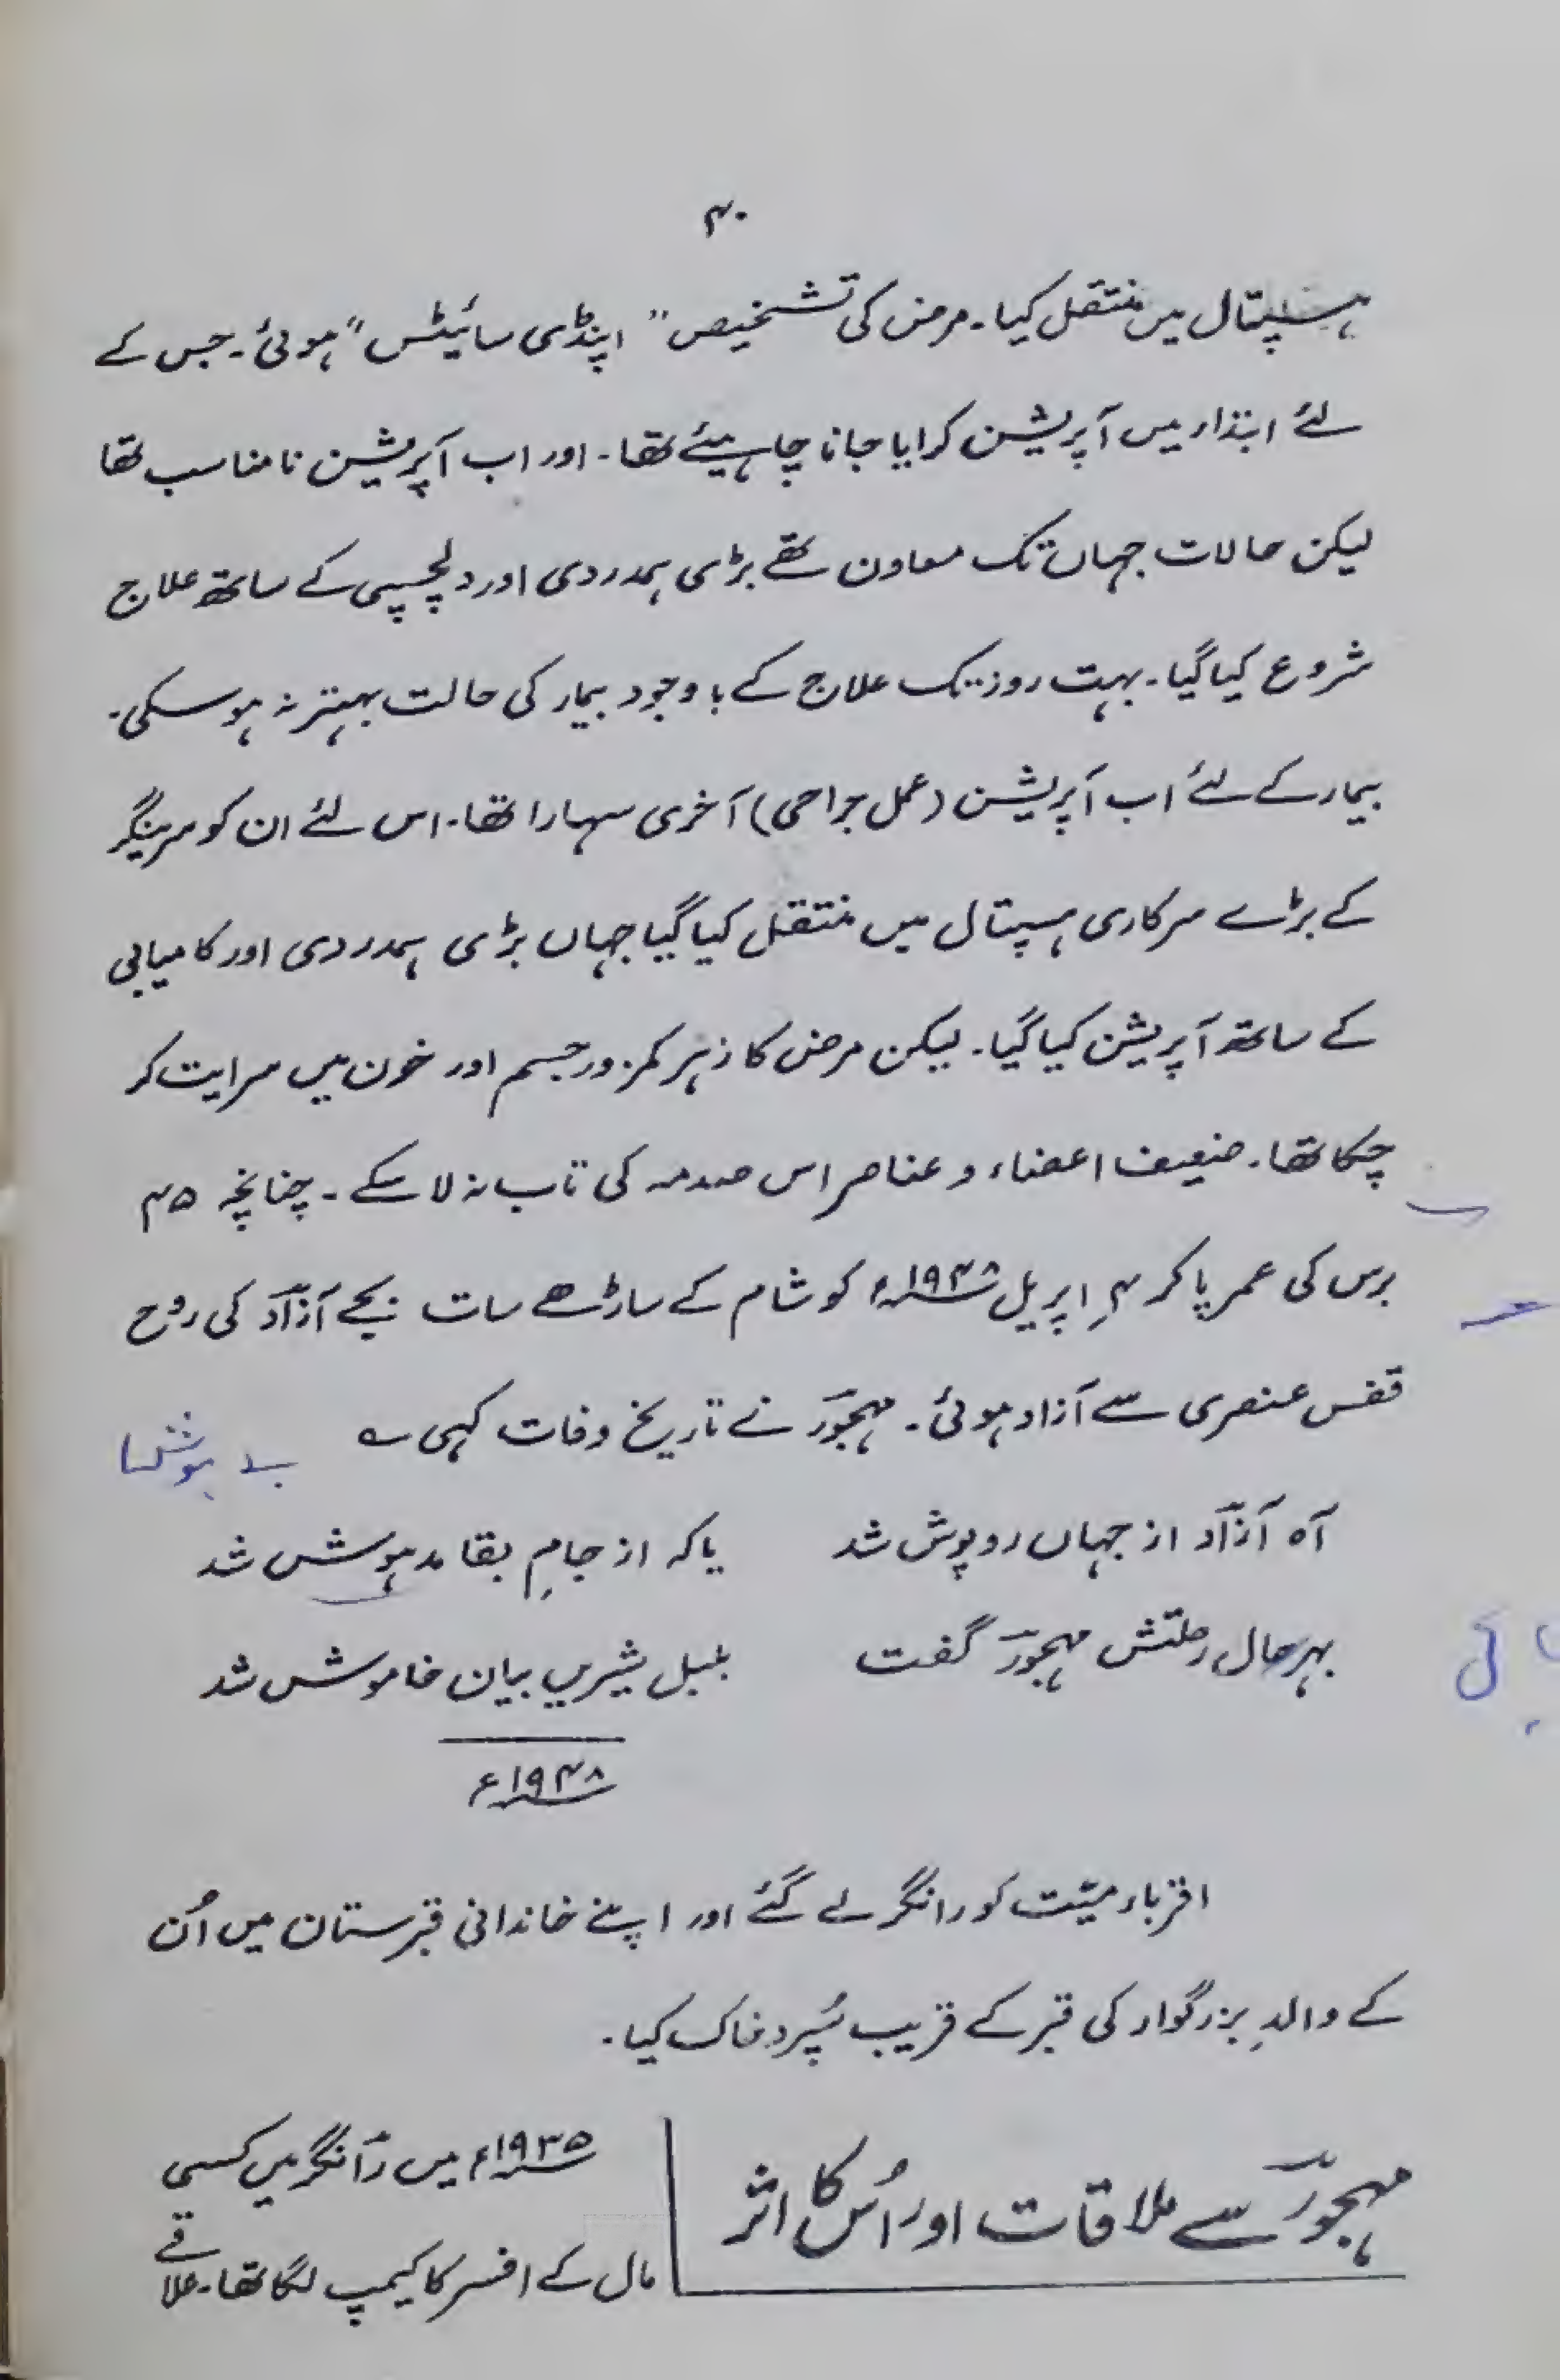 ۴۰
ہسپتال میں منتقل کیا۔ مرض کی تشخیص "اپنڈی سائیٹس" ہوئی۔ جس کے
لئے ابتداء میں آپریشن کرایا جانا چاہیئے تھا۔ اور اب آپریشن نامناسب تھا
لیکن حالات جہاں تک معاون تھے بڑی ہمدردی اور دلچسپی کے ساتھ علاج
شروع کیا گیا۔ بہت روز تک علاج کے باوجود بیمار کی حالت بہتر نہ ہوسکی۔
بیمار کے لئے اب آپریشن (عمل جراحی) آخری سہارا تھا۔ اس لئے ان کو سرینگر
کے بڑے سرکاری ہسپتال میں منتقل کیا گیا جہاں بڑی ہمدردی اور کامیابی
کے ساتھ آپریشن کیا گیا۔ لیکن مرض کا زہر کمزور جسم اور خون میں سرایت کر
چکا تھا۔ ضعیف اعضاء و عناصر اس صدمہ کی تاب نہ لاسکے۔ چنانچہ ۴۵
برس کی عمر پاکر ۴ اپریل ۱۹۴۸ء کو شام کے ساڑھے سات بجے آزاؔد کی رُوح
قفس عنصری سے آزاد ہوئی۔ مہجوؔر نے تاریخ وفات کہی ؎
آہ آزاؔد از جہاں روپوش شد یا کہ از جامِ بقا مدہوش شد
بہرحال رحلتش مہجوؔر گفت بلبل شیریں بیان خاموش شد
۱۹۴۸ء
اقرباء میّت کو رانگر لے گئے اور اپنے خاندانی قبرستان میں اُن
کے والدِ بزرگوار کی قبر کے قریب سُپرد خاک کیا۔
مہجوؔر سے ملاقات اور اُس کا اثر
۱۹۳۵ء میں رانگر میں کسی
مال کے افسر کا کیمپ لگا تھا۔ علاقے